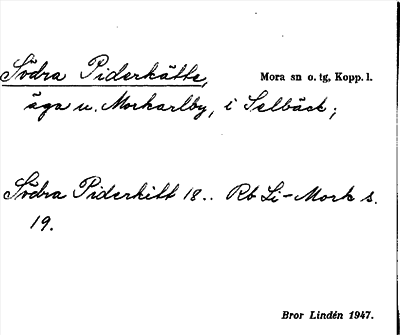 Södra Piderkätte, Mora sn o. tg, Kopp. l.
äga u. Morkarlby, i Selbäck;
Södra Piderkitt 18.. Rb Li-Mork s.
19.
Bror Lindén 1947.